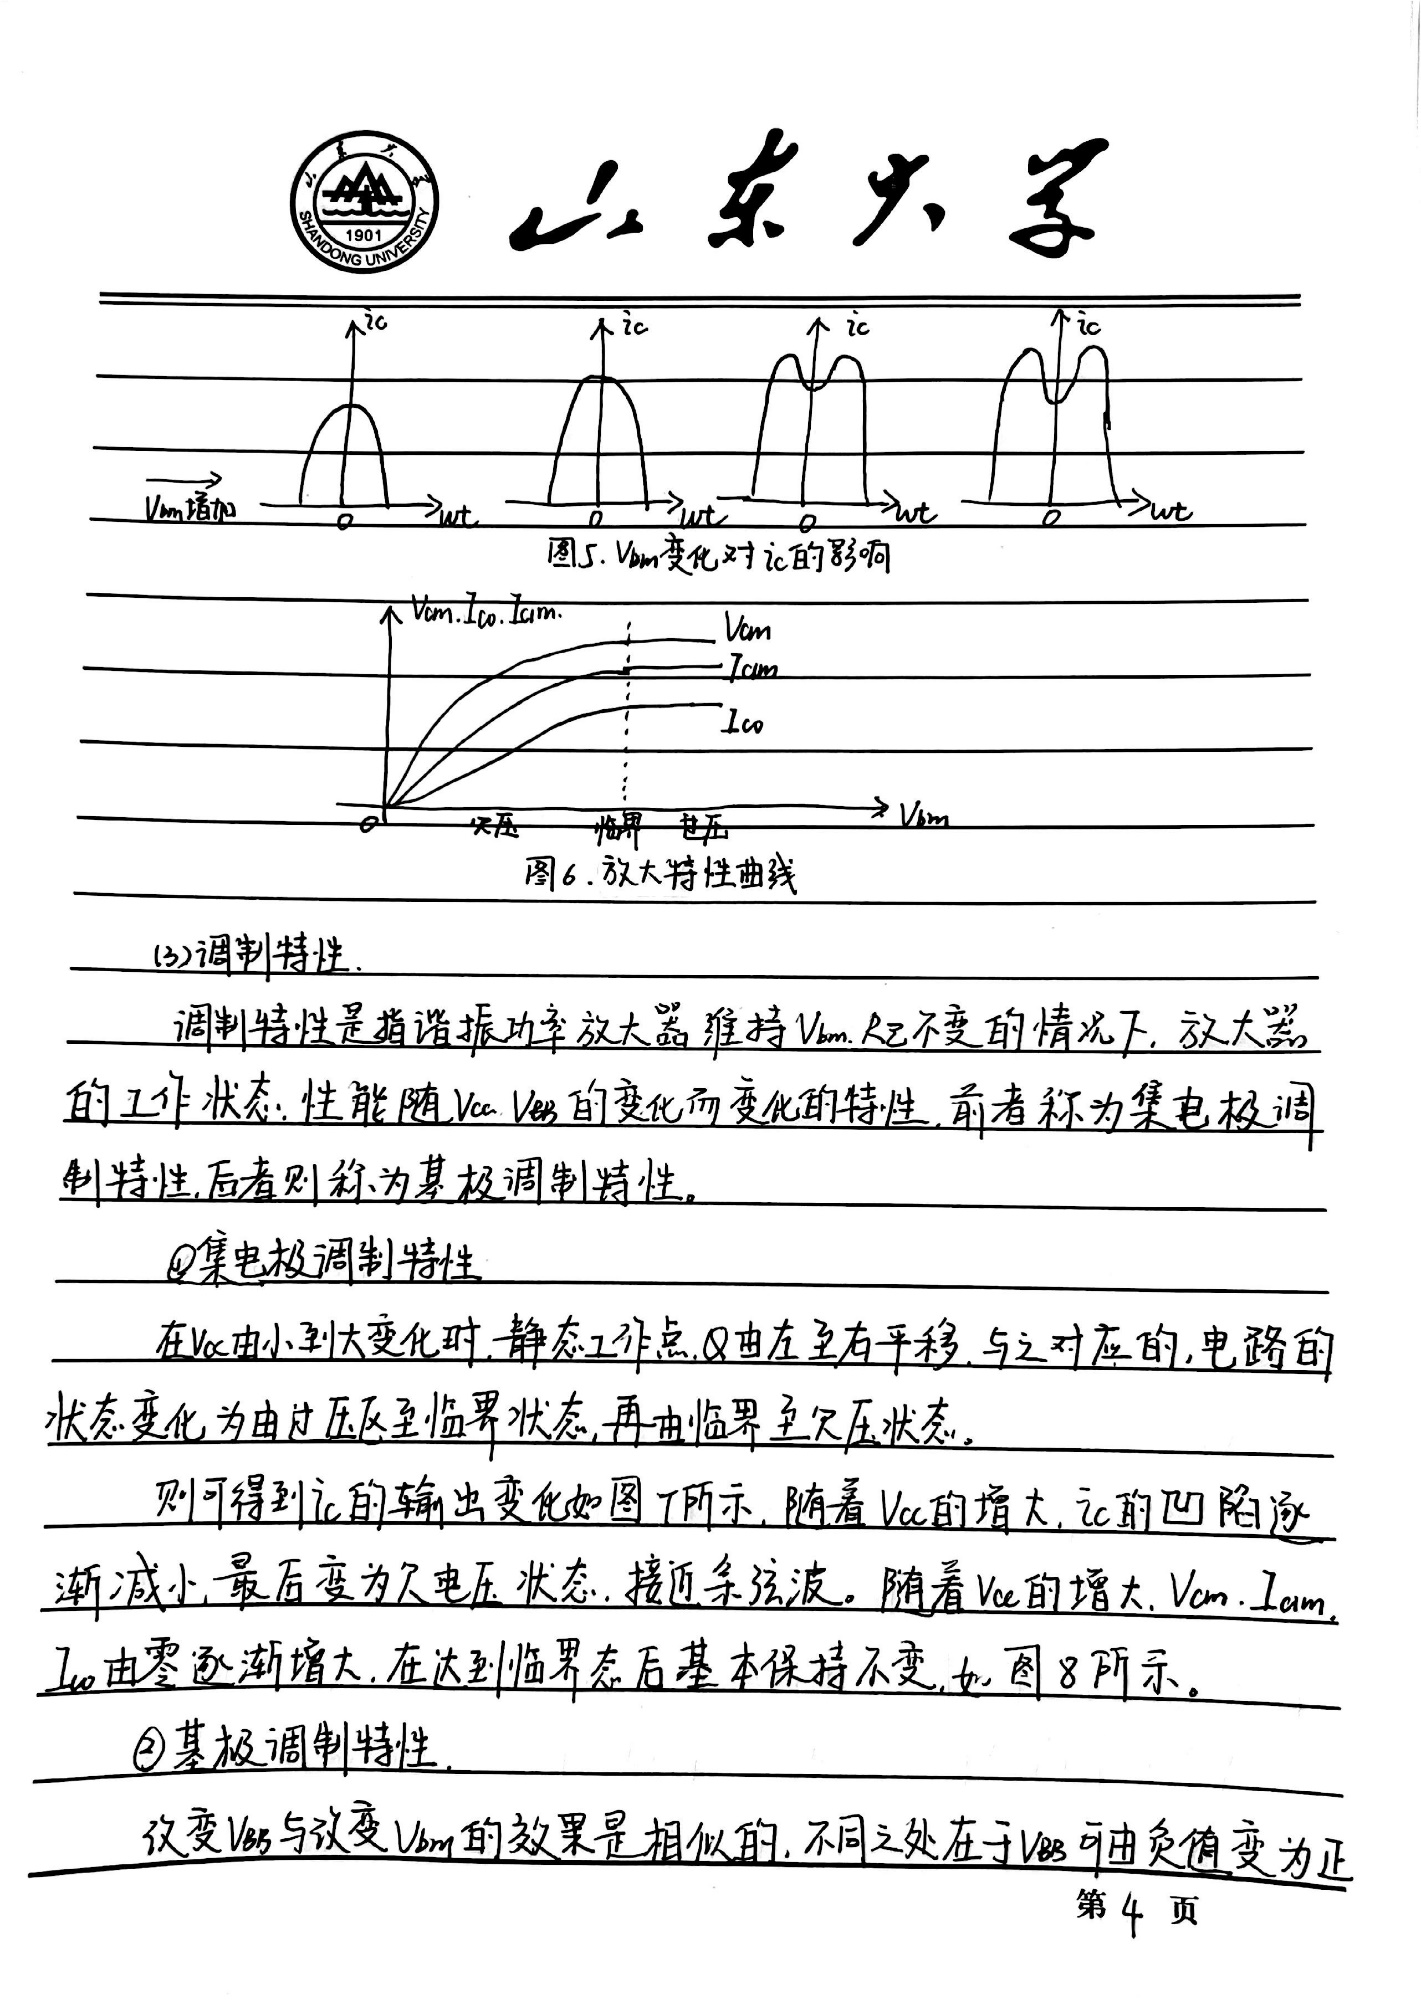 山东大学
山东大学
1901
SHANDONG UNIVERSITY
ic ic ic ic
Vbm增加 0 wt 0 wt 0 wt 0 wt
图5. Vbm变化对ic的影响
Vcm. Ico. Ic1m.
Vcm
Ic1m
Ico
0 欠压 临界 过压 Vbm
图6. 放大特性曲线
(3)调制特性.
调制特性是指谐振功率放大器维持Vbm. RΣ不变的情况下, 放大器
的工作状态. 性能随Vcc. VBB的变化而变化的特性, 前者称为集电极调
制特性, 后者则称为基极调制特性。
①集电极调制特性
在Vcc由小到大变化时, 静态工作点Q由左至右平移, 与之对应的, 电路的
状态变化为由过压区至临界状态, 再由临界至欠压状态。
则可得到ic的输出变化如图7所示, 随着Vcc的增大, ic的凹陷逐
渐减小, 最后变为欠电压状态, 接近余弦波。随着Vcc的增大, Vcm. Ic1m.
Ico由零逐渐增大, 在达到临界态后基本保持不变, 如图8所示。
②基极调制特性.
改变VBB与改变Vbm的效果是相似的, 不同之处在于VBB可由负值变为正
第4页